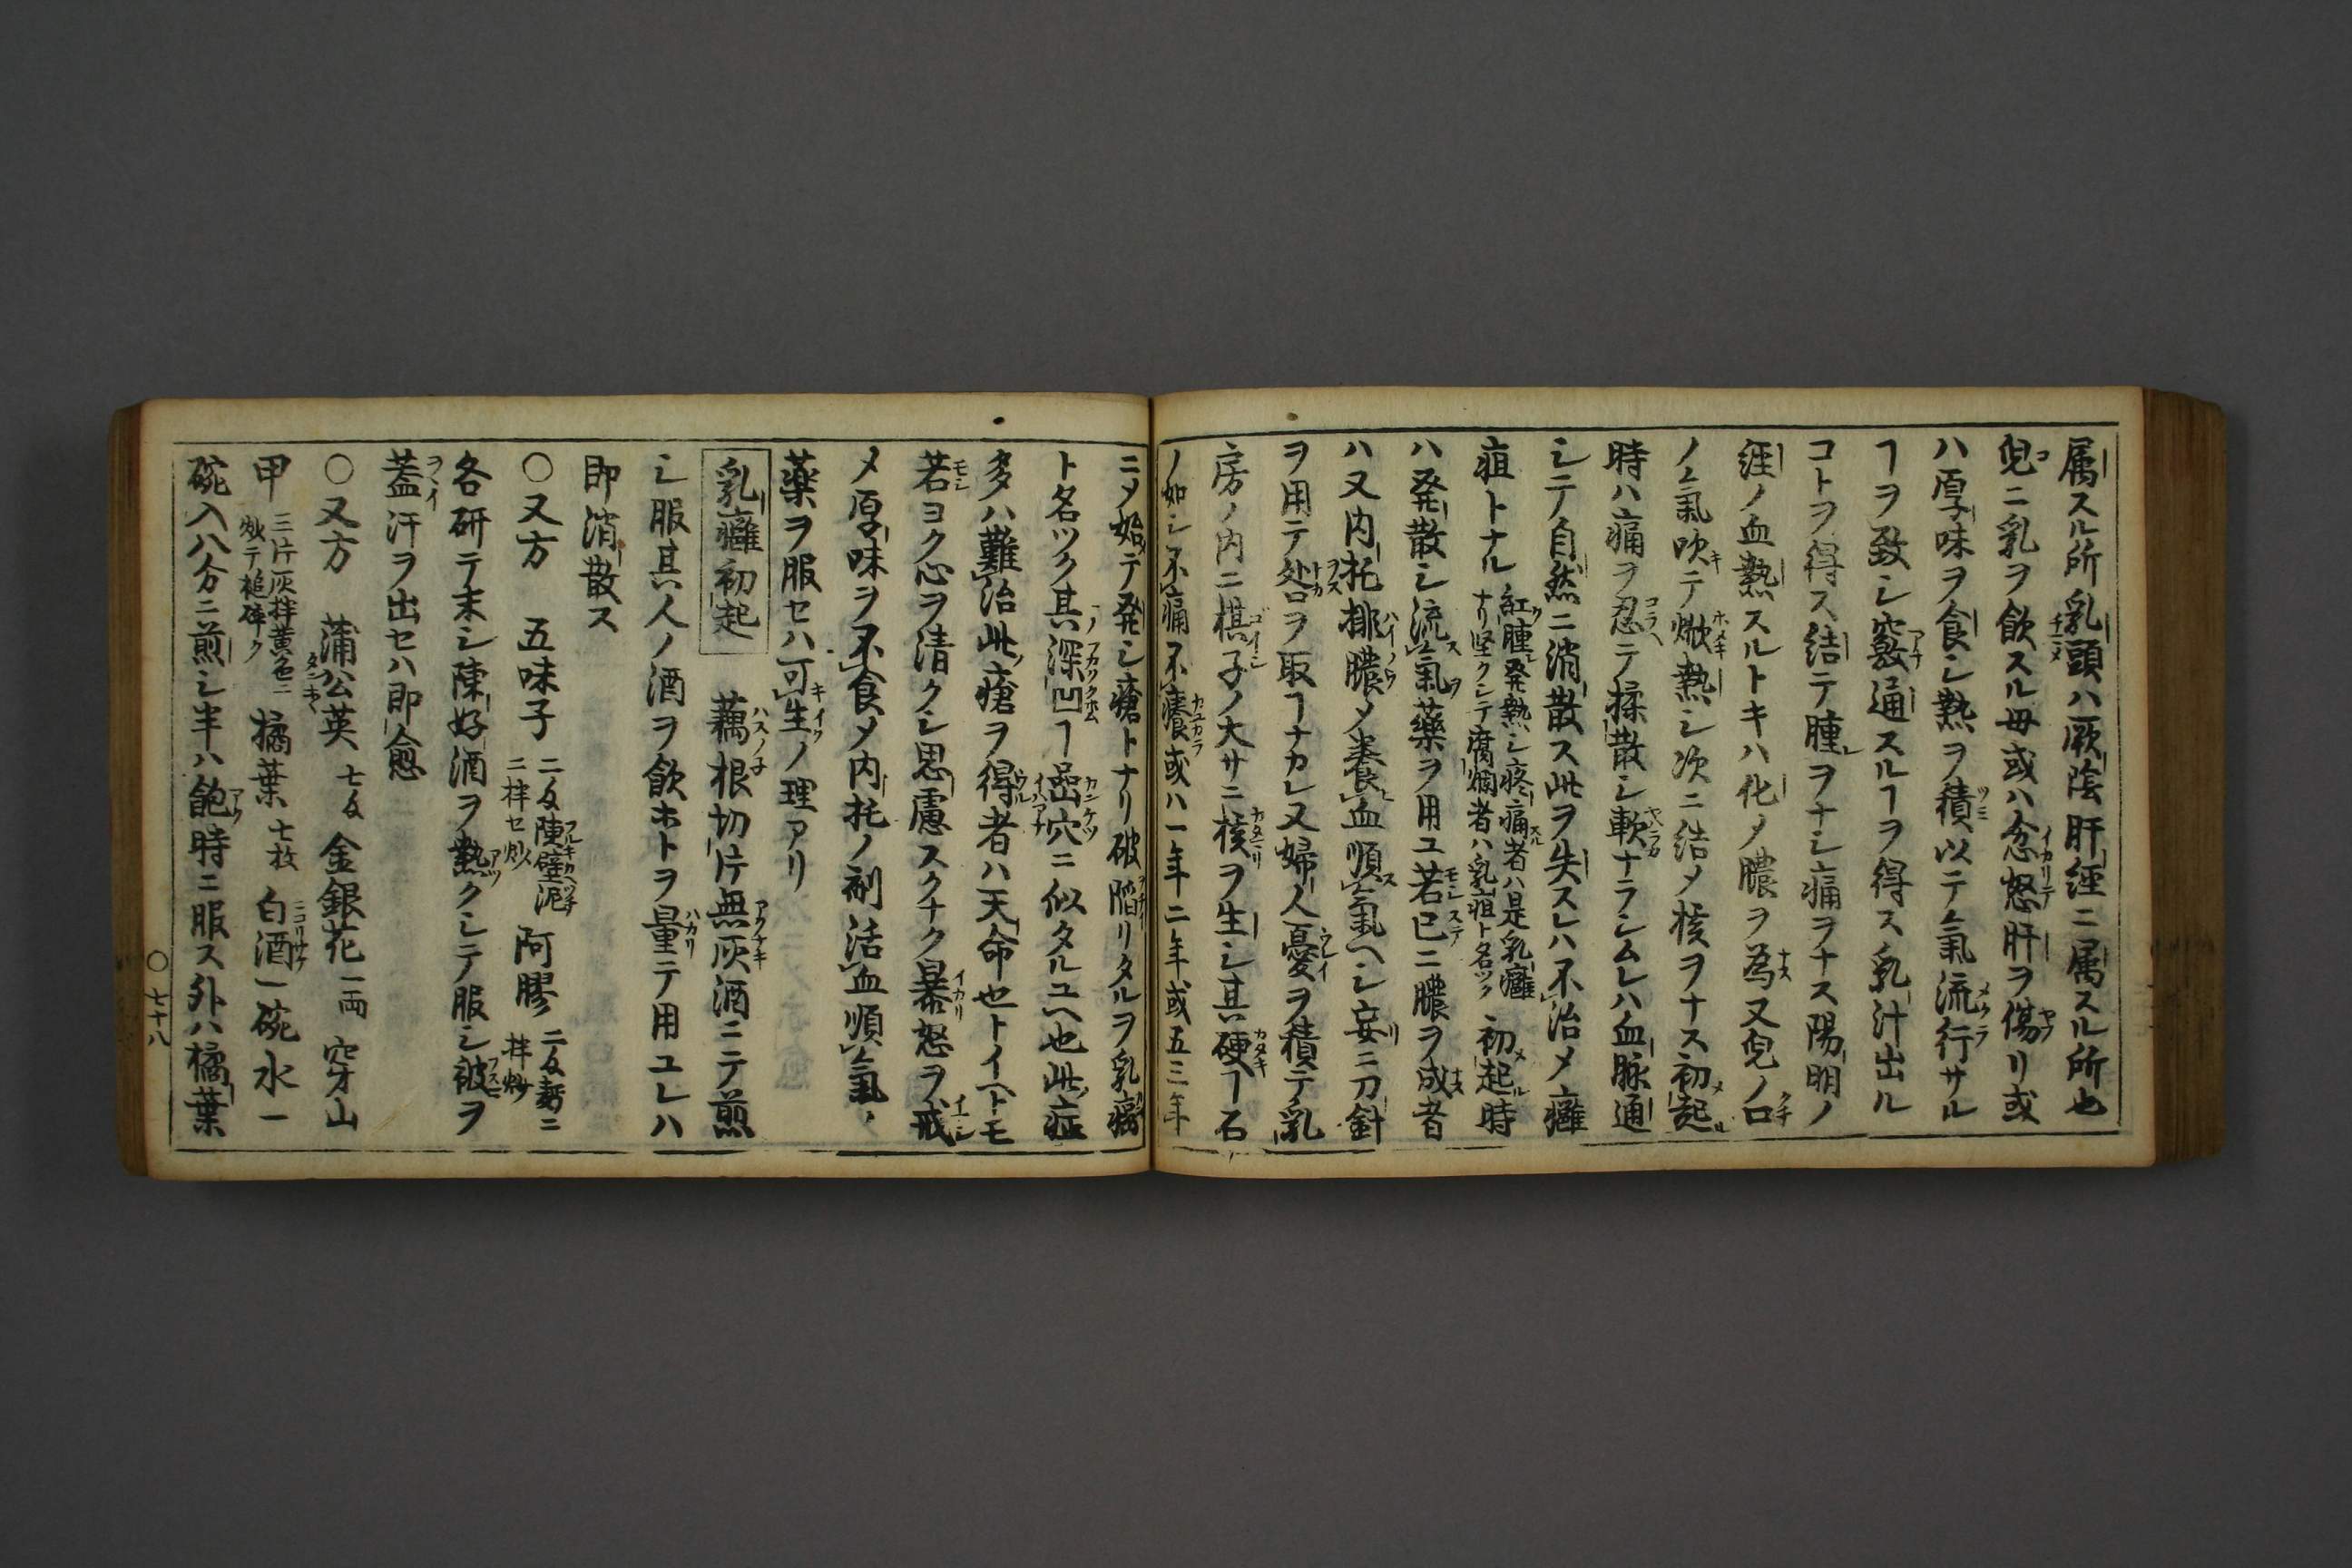 属スル所乳頭ハ厥陰肝経ニ属スル所也
兒ニ乳ヲ飲スル毋或ハ忿怒肝ヲ傷リ或
ハ厚味ヲ食シ熱ヲ積以テ氣流行サル
ヿヲ致シ竅通スルヿヲ得ス乳汁出ル
コトヲ得ス結テ腫ヲナシ痛ヲナス陽明ノ
経ノ血熱スルトキハ化メ膿ヲ為又兒ノ口
ノ氣吹テ焮熱シ次ニ結メ核ヲナス初起
時ハ痛ヲ忍テ揉散シ軟ナラシムレハ血脉通
シテ自然ニ消散ス此ヲ失スレハ不治メ癰
疽トナル 紅腫発熱シ疼痛者ハ是乳癰
ナリ堅クシテ腐爛者ハ乳疽ト名ツク 初起時
ハ発散シ流氣藥ヲ用ユ若已ニ膿ヲ成者
ハ又内托排膿メ養血順氣ヘシ妄ニ刀針
ヲ用テ处ヲ取ヿナカレ又婦人憂ヲ積テ乳
房ノ内ニ棋子ノ大サニ核ヲ生シ其硬ヿ石
ノ如シ不痛不癢或ハ一年二年或五三年
ニメ始テ発シ瘡トナリ破陷リタルヲ乳癌
ト名ツク其深凹ヿ嵒穴ニ似タルユヘ也此症
多ハ難治此瘡ヲ得者ハ天命也トイヘトモ
若ヨク心ヲ清クシ思慮スクナク暴怒ヲ戒
メ厚味ヲ不食メ内托ノ剤活血順氣ノ
藥ヲ服セハ可生ノ理アリ
乳癰初起 藕根切片無灰酒ニテ煎
シ服其人ノ酒ヲ飲ホトヲ量テ用ユレハ
即消散ス
○又方 五味子 二匁陳壁泥ニ拌セ炒 阿膠 二匁麪ニ拌炒
各研テ末シ陳好酒ヲ熱クシテ服シ被ヲ
蓋汗ヲ出セハ即愈
○又方 蒲公英 七匁 金銀花 一両 穿山
甲 三片灰拌黄色ニ炒テ槌碎ク 橘葉 七枚 白酒一碗水一
碗入八分ニ煎シ半ハ飽時ニ服ス外ハ橘葉
○七十八